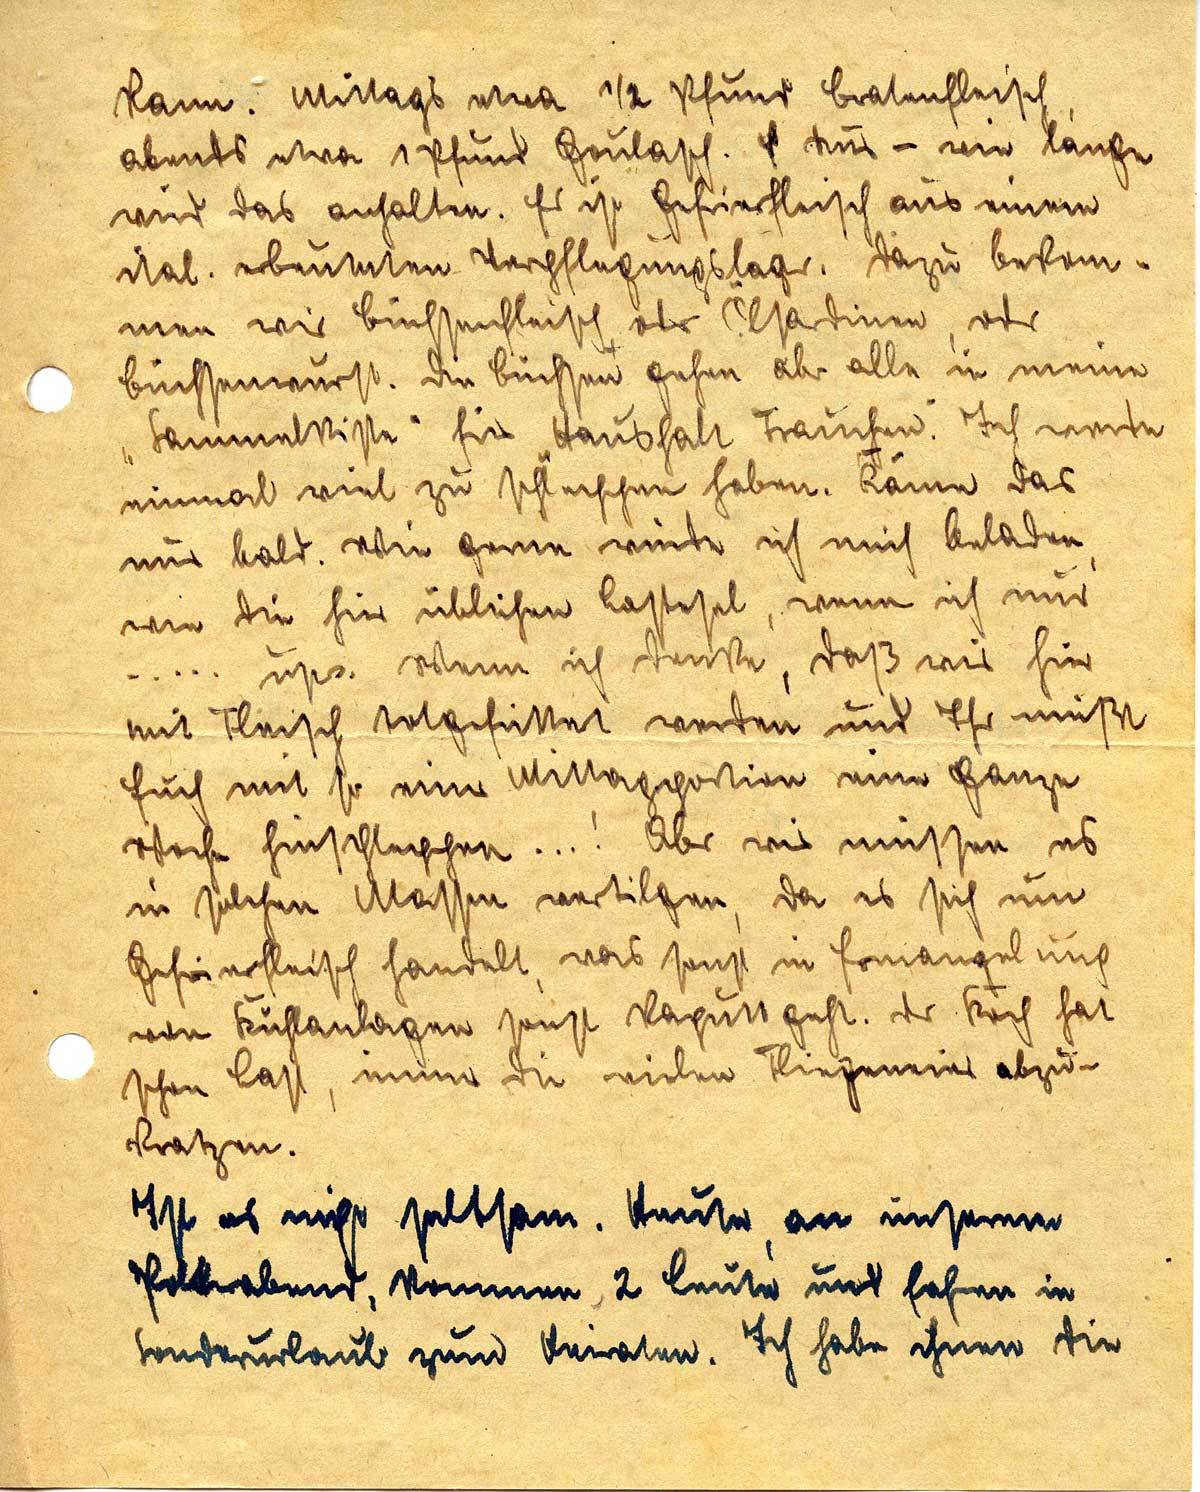 kann. Mittags etwa 1/2 Pfund Bratenfleisch,
abends etwa 1 Pfund Goulasch. Nur – wie lange
wird das anhalten. Es ist Gefrierfleisch aus einem
ital. erbeuteten Verpflegungslager. Dazu bekom-
men wir Büchsenfleisch oder Ölsardinen, oder
Büchsenwurst. Die Büchsen gehen aber alle in meine
„Sammelkiste" für „Haushalt Frauchen". Ich werde
einmal viel zu schleppen haben. Käme das
nur bald. Wie gerne würde ich mich beladen,
wie die hier üblichen Lastesel, wenn ich nur
..... usw. Wenn ich denke, daß wir hier
mit Fleisch totgefüttet werden und Ihr müßt
Euch mit so einer Mittagportion eine ganze
Woche hinschleppen ...! Aber wir müssen es
in solchen Massen vertilgen, da es sich um
Gefrierfleisch handelt, was sonst in Ermangelung
von Kühlanlagen sonst kaputt geht. Der Koch hat
schon Last, immer die vielen Fliegeneier abzu-
kratzen.
Ist es nicht seltsam. Heute, an unserem
Polterabend, kommen 2 Leute und fahren in
Sonderurlaub zum Heiraten. Ich habe ihnen die